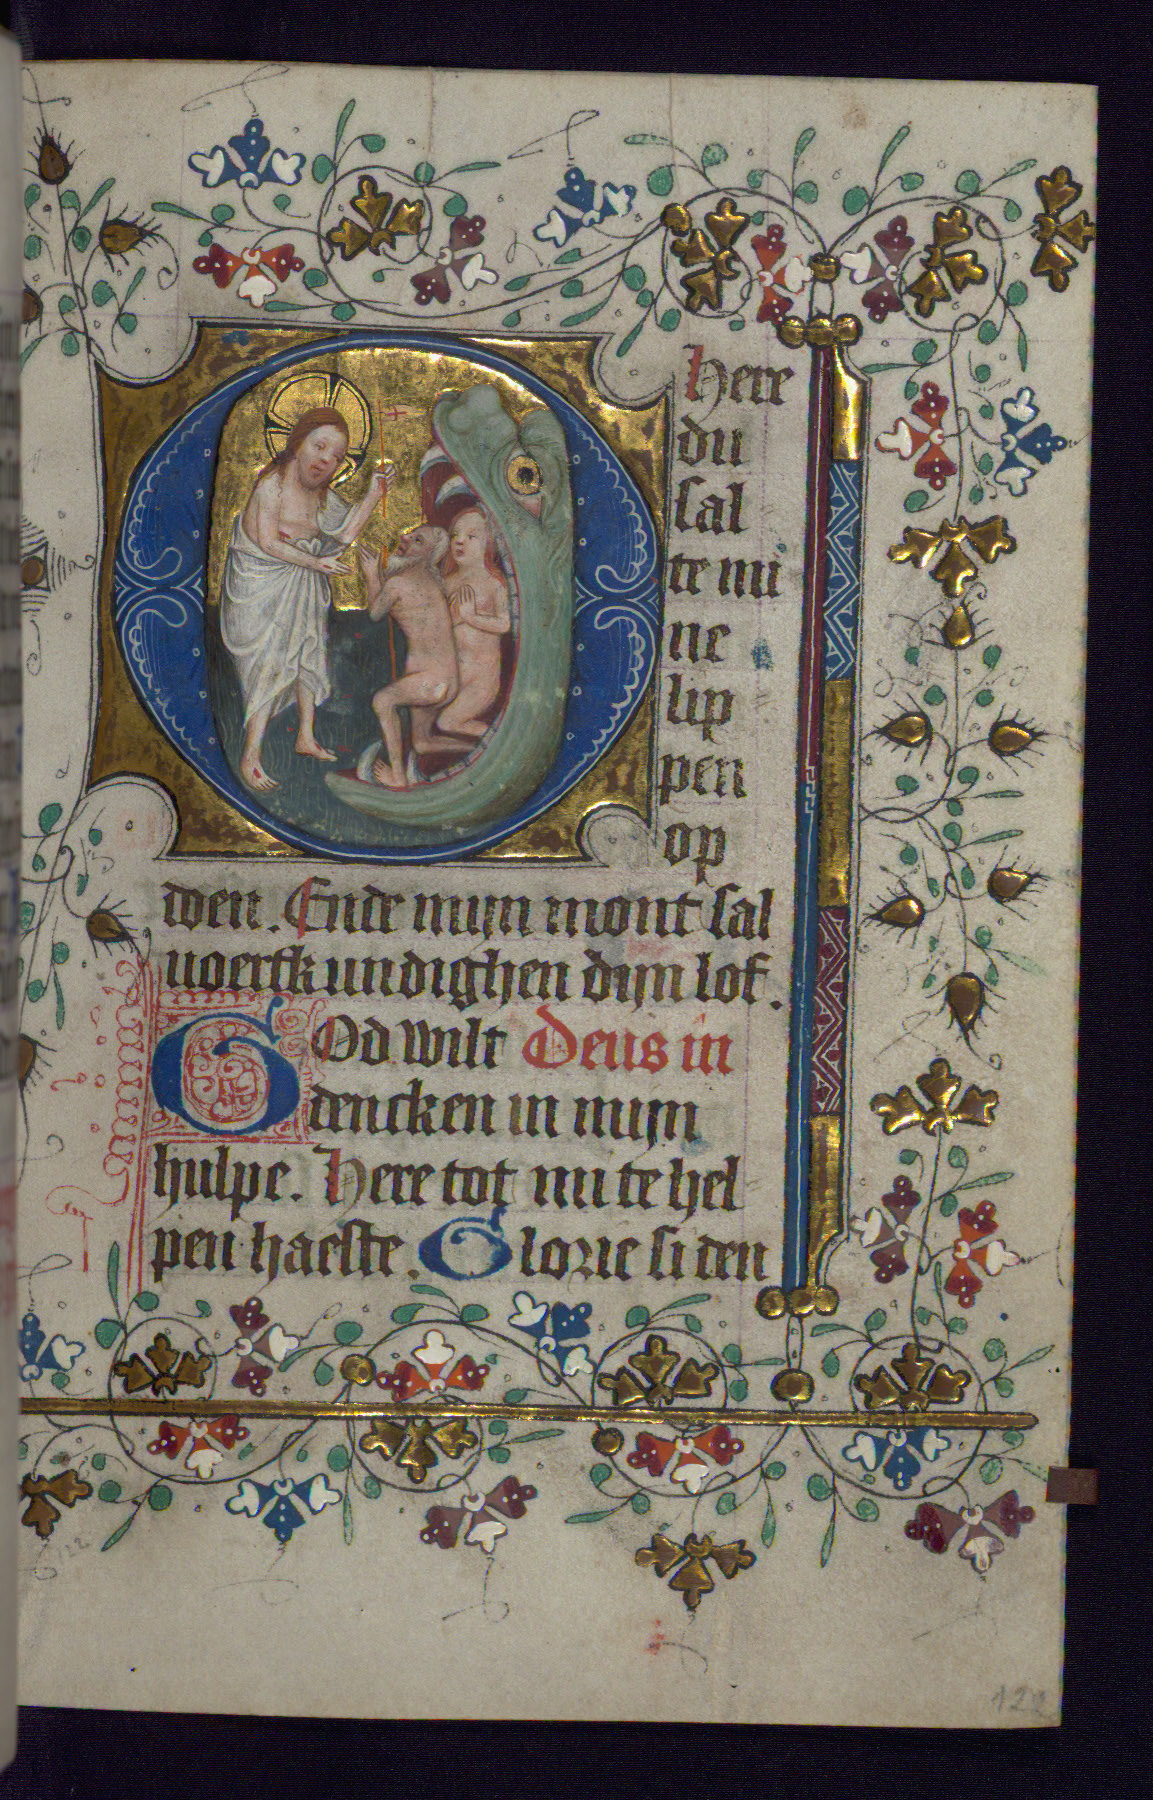 O Here
du
sal
te mi
ne
lip
pen
op
doen. Ende mijn mont sal
voertkundighen dijn lof.
God wilt Deus in
dencken in mijn
hulpe. Here tot mi te hel
pen haeste. Glorie si den
122